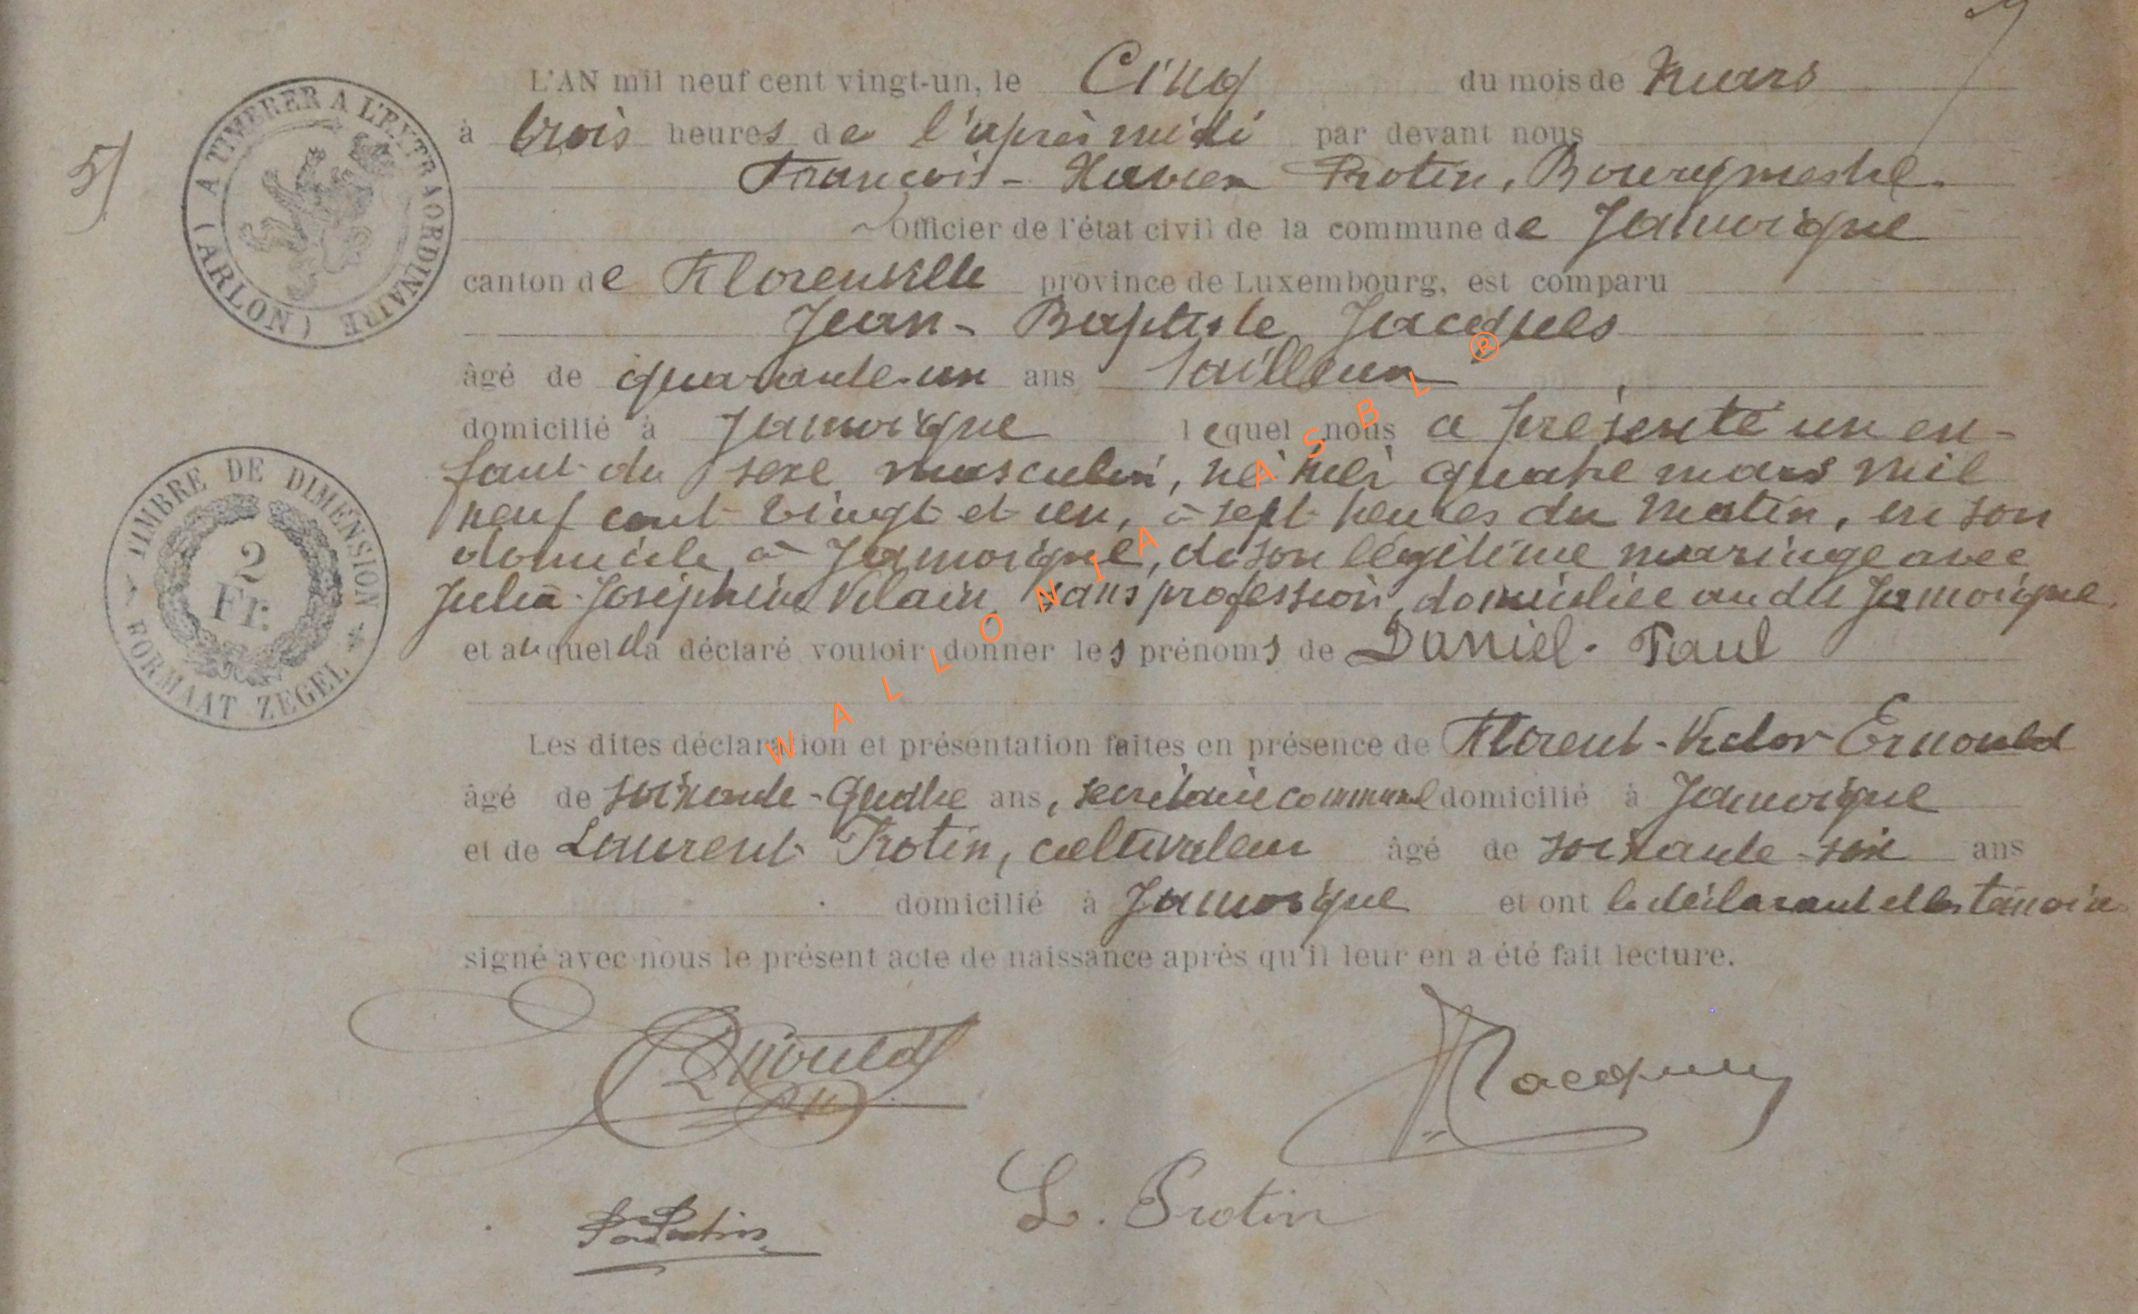 5)
( A TIMBRER A L'EXTRAORDINAIRE ( ARLON )
L'AN mil neuf cent vingt-un, le Cinq du mois de Mars
à trois heures de l'après midi par devant nous
François-Xavier Protin, Bourgmestre.
Officier de l'état civil de la commune de Jamoigne
canton de Florenville province de Luxembourg, est comparu
Jean-Baptiste Jacques
âgé de quarante-un ans Tailleur
domicilié à Jamoigne lequel nous a présenté un en-
fant du sexe masculin, né hier quatre mars mil
neuf cent vingt et un, à sept heures du matin, en son
domicile à Jamoigne, de son légitime mariage avec
Julia-Joséphine Vilain sans profession, domiciliée audit Jamoigne.
et auquel il a déclaré vouloir donner les prénoms de Daniel-Paul
TIMBRE DE DIMENSION * FORMAAT ZEGEL
2
Fr.
Les dites déclaration et présentation faites en présence de Florent-Victor Ernould
âgé de soixante-quatre ans, secrétaire communal domicilié à Jamoigne
et de Laurent Protin, cultivateur âgé de soixante-six ans
domicilié à Jamoigne et ont le déclarant et les témoins
signé avec nous le présent acte de naissance après qu'il leur en a été fait lecture.
Ernould
Jacques
L. Protin
Protin
WALLONIA ASBL ®